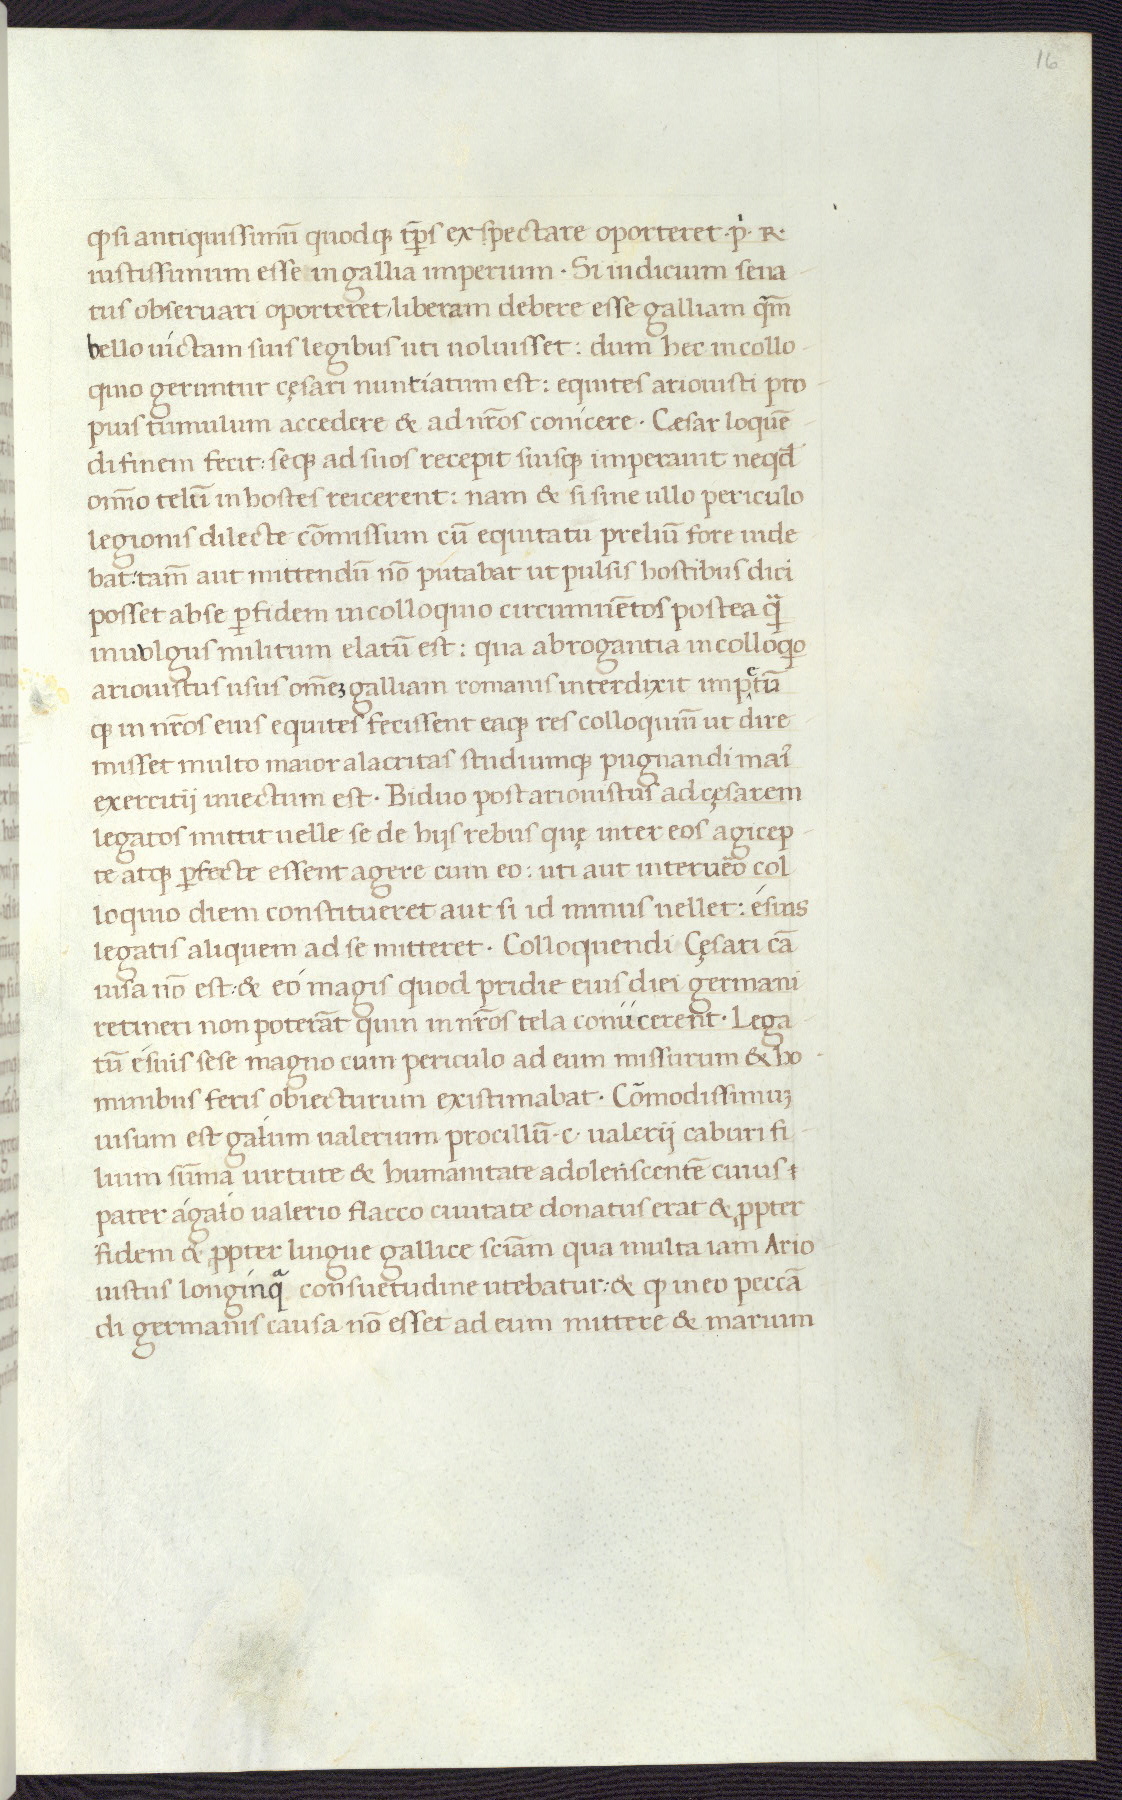 16
ꝙ si antiquissimū quodqꝫ tp̄s exspectare oporteret ·p̓· R·
iustissimum esse in gallia imperium · Si iudicium sena-
tus obseruari oporteret/ liberam debere esse galliam qm̄
bello uictam suis legibus uti uoluisset : dum hec in collo-
quio geruntur cęsari nuntiatum est : equites ariouisti pro-
pius tumulum accedere & ad nr̄os conicere · Cęsar loquē-
di finem fecit : seqꝫ ad suos recepit suisqꝫ imperauit neqd̓
om̄o telū in hostes reicerent : nam & si sine ullo periculo
legionis dilecte cōmissum cū equitatu preliū fore uide-
bat : tam̄ aut mittendū nō putabat ut pulsis hostibus dici
posset ab se ꝑ fidem in colloquio circumuētos postea qͣ̄
in uolgus militum elatū est : qua abrogantia in colloqͦ
ariouistus usus om̄eꝫ galliam romanis interdixit impetū
qꝫ in nr̄os eius equites fecissent eaqꝫ res colloquiū ut dire
misset multo maior alacritas studiumqꝫ pugnandi mai᷑
exercitij iniectum est · Biduo post ariouistus ad cęsarem
legatos mittit uelle se de hijs rebus quę inter eos agi cep-
te atqꝫ ꝑfecte essent agere cum eo : uti aut interuēo col
loquio diem constitueret aut si id minus uellet : é suis
legatis aliquem ad se mitteret · Colloquendi Cęsari cā
uisa nō est : & eó magis quod pridie eius diei germani
retineri non poterāt quin in nr̄os tela conijcerent · Lega-
tū é suis sese magno cum periculo ad eum missurum & ho-
minibus feris obiecturum existimabat · Cōmodissimuꝫ
uisum est gaium ualerium procillū ·c· ualerij caburi fi-
lium sūma uirtute & humanitate adolenscentē cuius
pater á gaio ualerio flacco ciuitate donatus erat & ꝓpter
fidem & ꝓpter lingue gallice sciām qua multa iam Ario
uistus longinqͣ consuetudine utebatur : & ꝙ in eo peccā
di germanis causa nō esset ad eum mittere & maruim